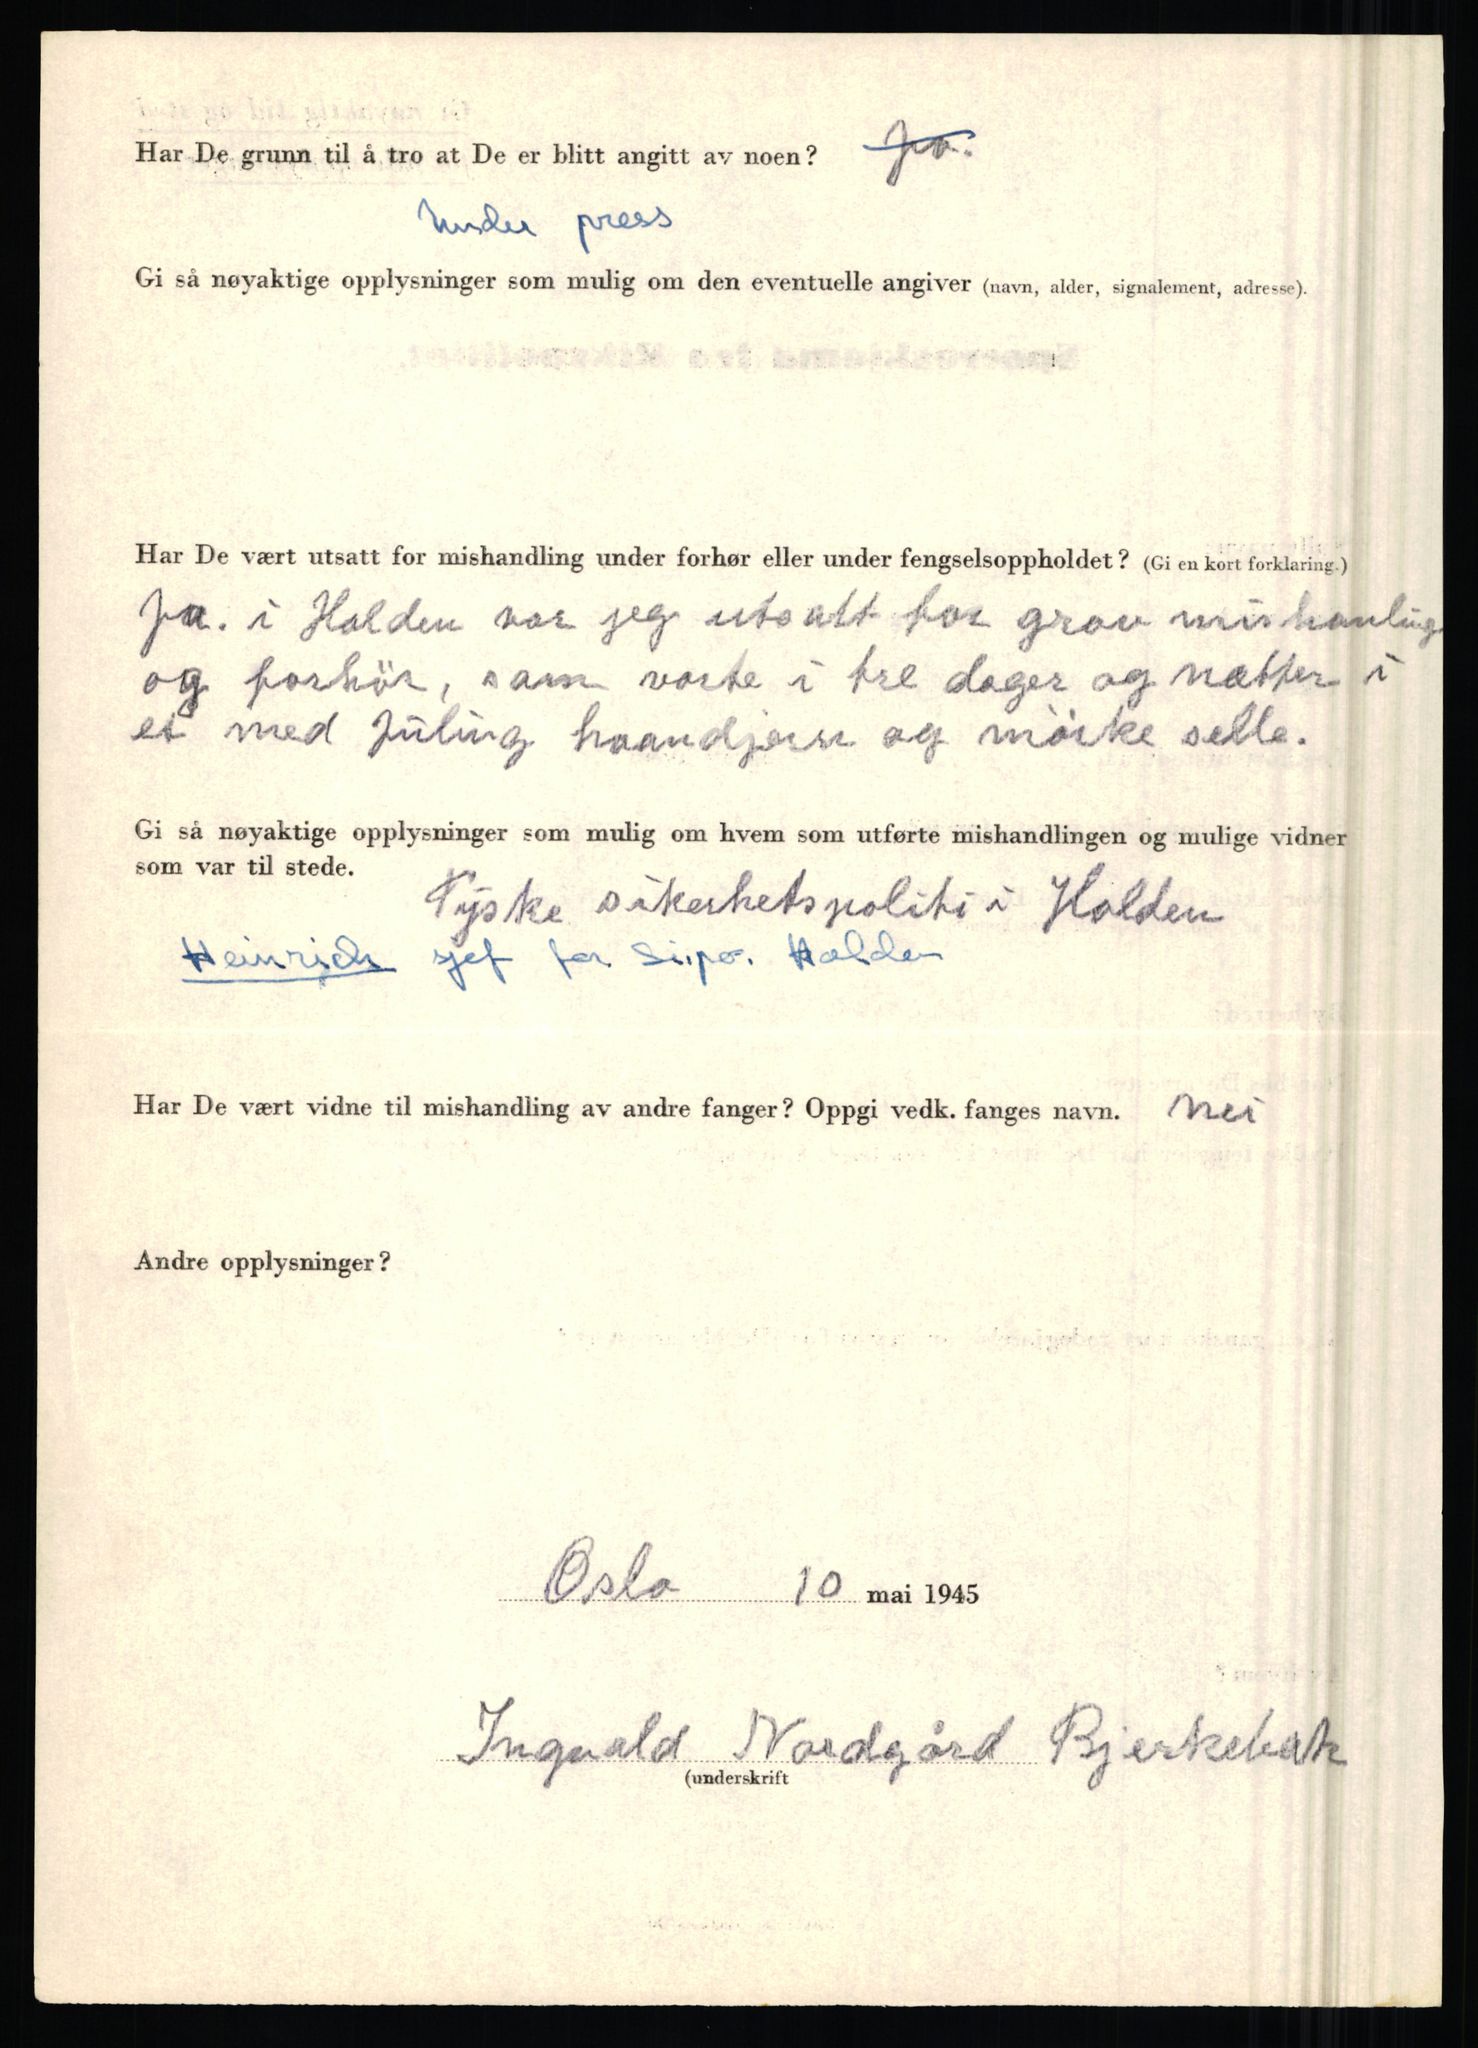 Har De grunn til å tro at De er blitt angitt av noen? Ja.
Under press
Gi så nøyaktige opplysninger som mulig om den eventuelle angiver (navn, alder, signalement, adresse).
Har De vært utsatt for mishandling under forhør eller under fengselsoppholdet? (Gi en kort forklaring.)
Ja. i Halden var jeg utsatt for grov mishanling
og forhör, som varte i tre dager og nætter i
et med Juling haandjern og mörke selle.
Gi så nøyaktige opplysninger som mulig om hvem som utførte mishandlingen og mulige vidner
som var til stede.
Tyske sikerhetspoliti i Halden
Heinrich sjef for Si.po. Halden
Har De vært vidne til mishandling av andre fanger? Oppgi vedk. fanges navn. nei
Andre opplysninger?
Oslo 10 mai 1945
Ingvald Nordgård Bjerkebak
(underskrift